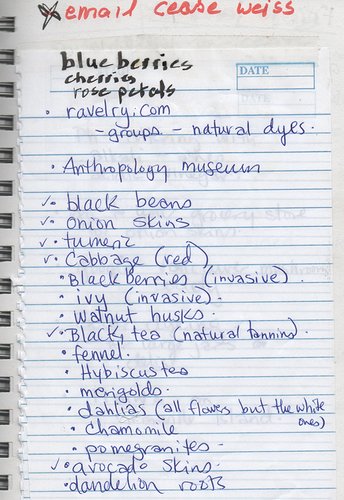 email cease weiss
blueberries
cherries
rose petals
DATE
• ravelry.com
- groups - natural dyes.
• Anthropology museum
✓• black beans
✓• Onion skins
✓• tumeric
✓• Cabbage (red)
• Blackberries (invasive)
• ivy (invasive).
• walnut husks.
✓• Black tea (natural tannins).
• fennel.
• Hybiscus tea
• merigolds.
• dahlias (all flowers but the white ones)
• chamomile
• pomegranites -
✓• avocado skins.
• dandelion roots